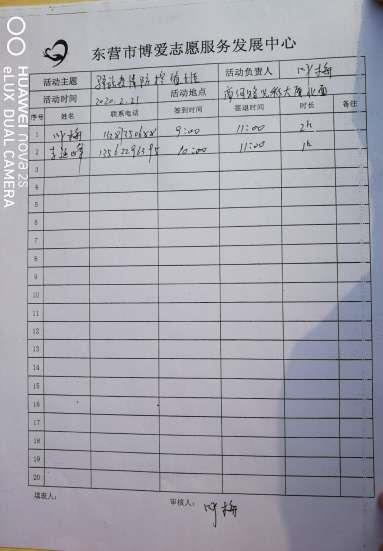 东营市博爱志愿服务发展中心
活动主题 疫情防控值班 活动负责人 叶梅
活动时间 2020.2.21 活动地点
序号 姓名 联系电话 签到时间 签退时间 时长 备注
1 叶梅 9:00 11:00 2h
2 10:00 11:00 1h
3
4
5
6
7
8
9
10
11
12
13
14
15
16
17
18
19
20
填表人： 审核人： 叶梅
HUAWEI nova 2s
eLUX DUAL CAMERA